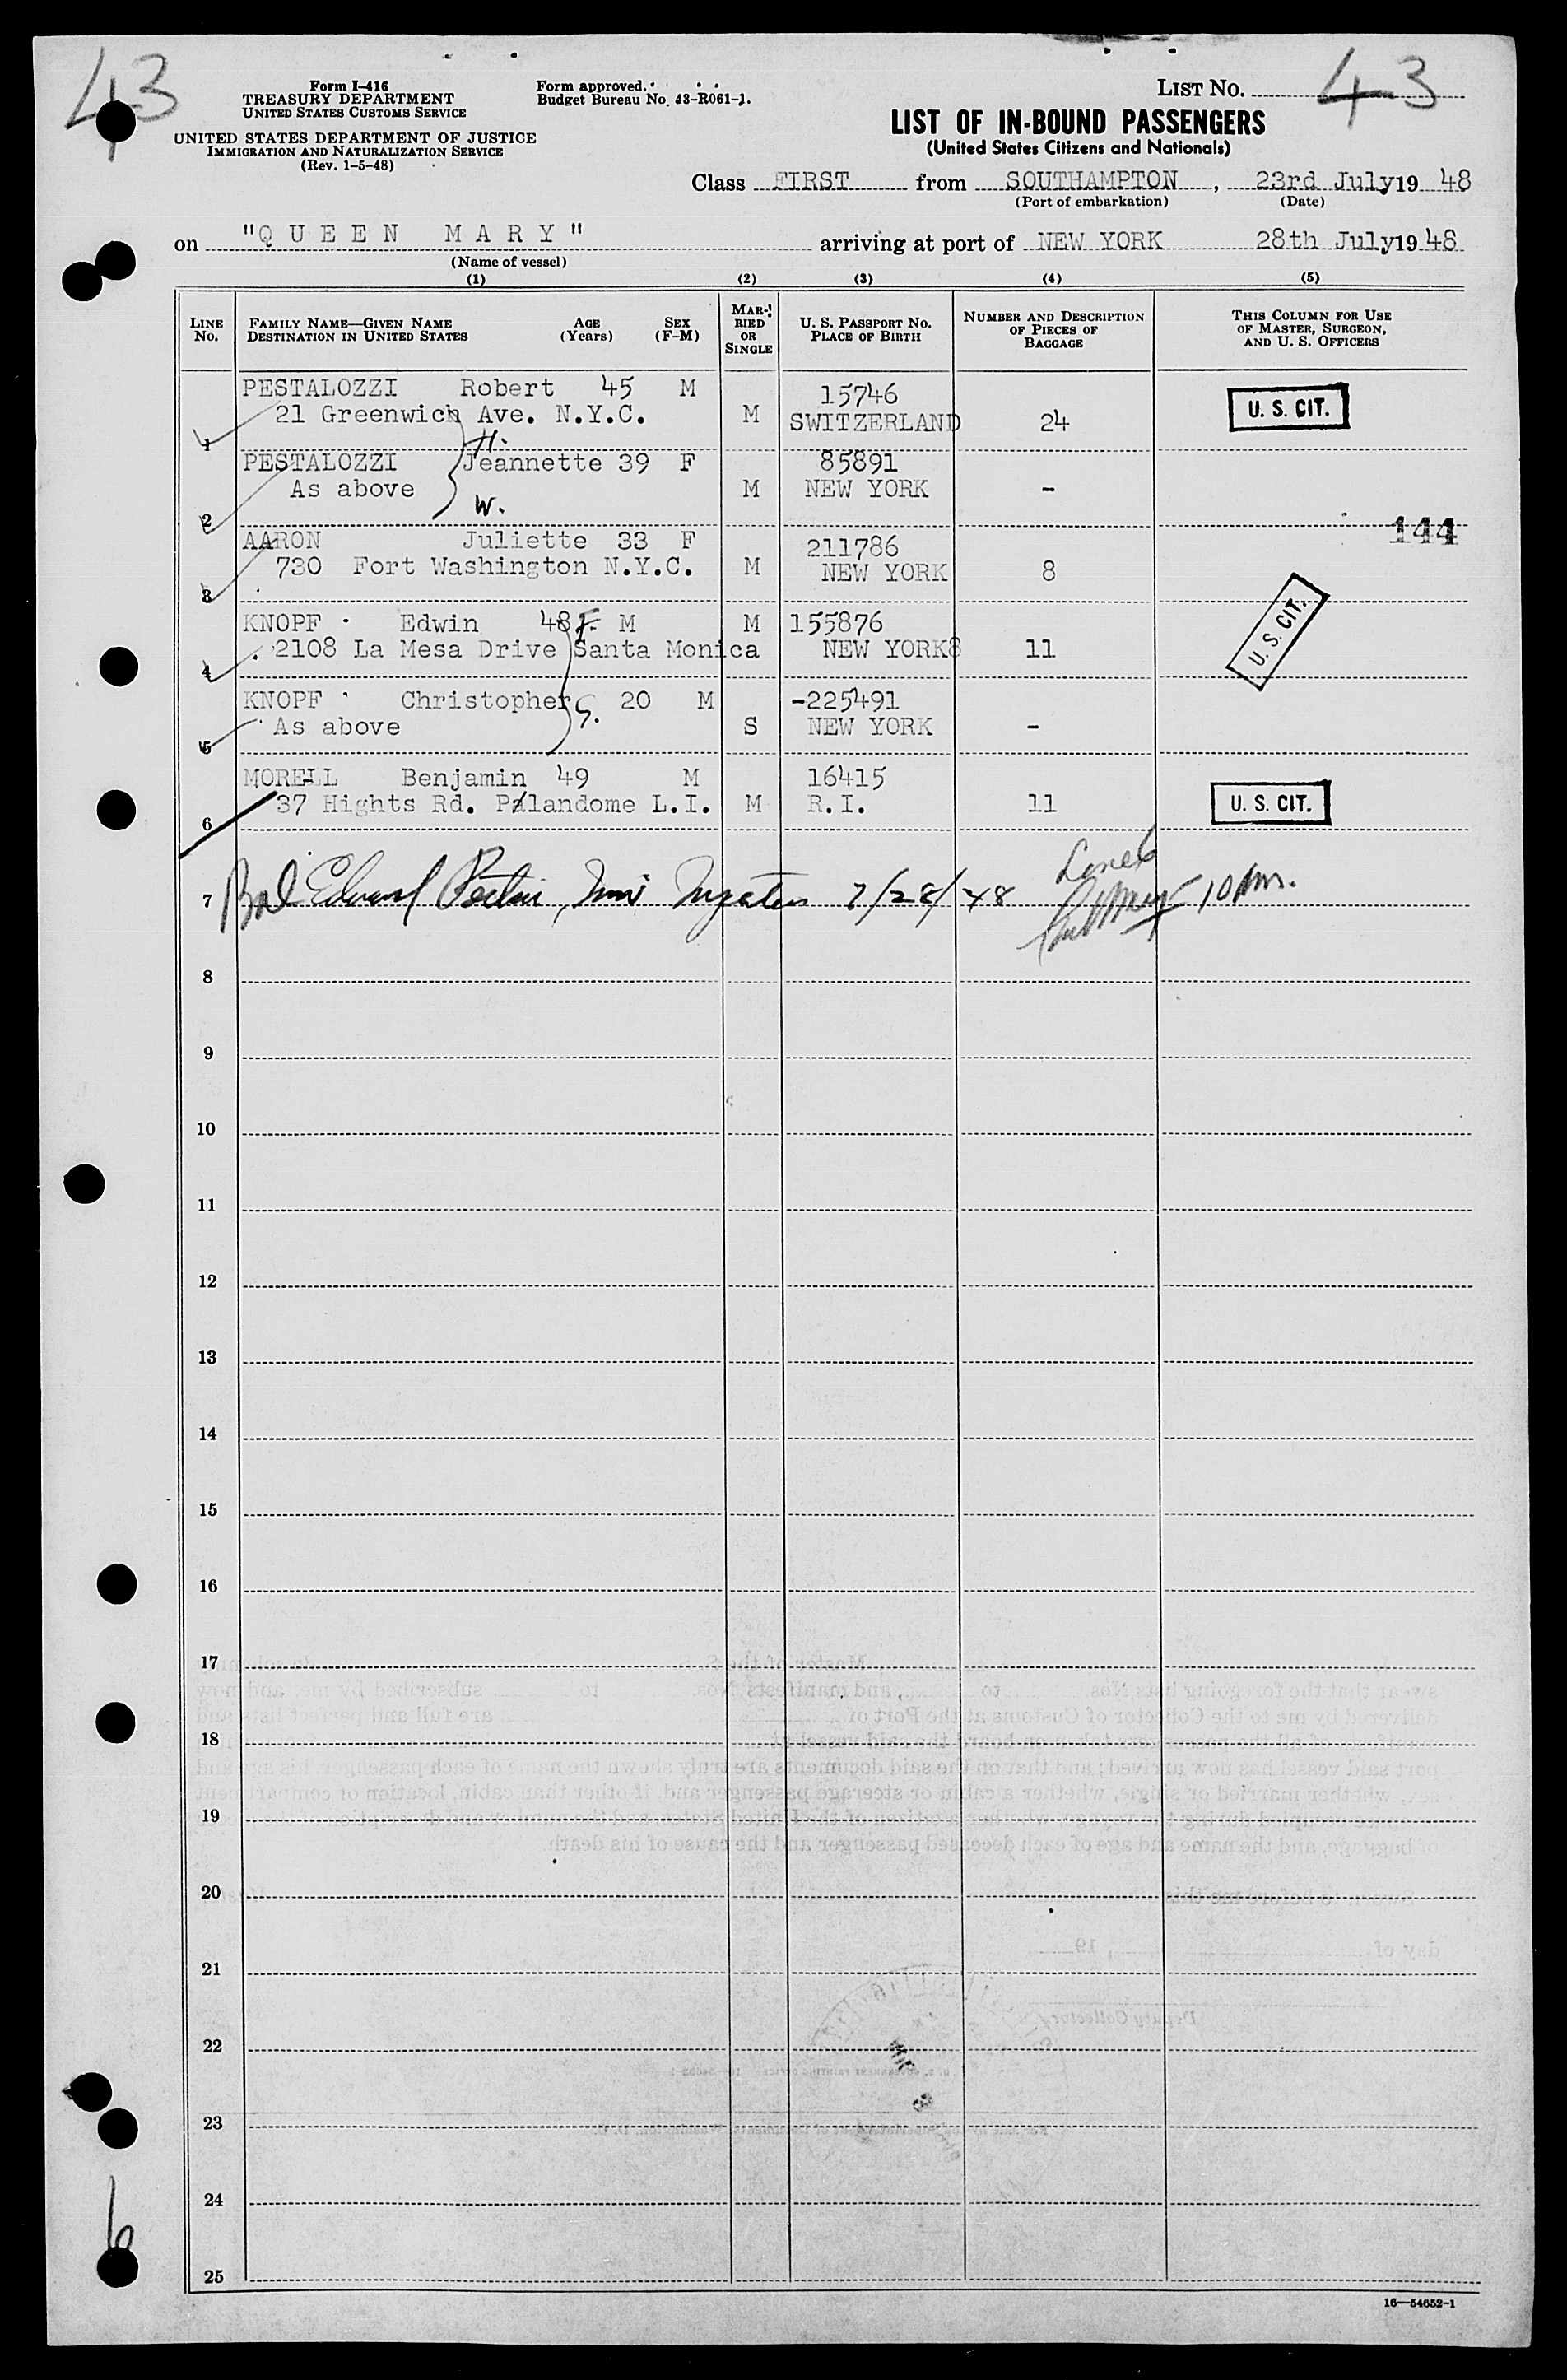 43
Form I-416
TREASURY DEPARTMENT
UNITED STATES CUSTOMS SERVICE
UNITED STATES DEPARTMENT OF JUSTICE
IMMIGRATION AND NATURALIZATION SERVICE
(Rev. 1-5-48)
Form approved.
Budget Bureau No. 43-R061-1.
LIST NO. 43
LIST OF IN-BOUND PASSENGERS
(United States Citizens and Nationals)
Class FIRST from SOUTHAMPTON, 23rd July 19 48
(Port of embarkation) (Date)
on "QUEEN MARY" arriving at port of NEW YORK 28th July 19 48
(Name of vessel)
(1) (2) (3) (4) (5)
LINE NO. FAMILY NAME—GIVEN NAME DESTINATION IN UNITED STATES AGE (Years) SEX (F-M) MARRIED OR SINGLE U. S. PASSPORT NO. PLACE OF BIRTH NUMBER AND DESCRIPTION OF PIECES OF BAGGAGE THIS COLUMN FOR USE OF MASTER, SURGEON, AND U. S. OFFICERS
PESTALOZZI Robert 45 M 15746 U. S. CIT.
21 Greenwich Ave. N.Y.C. M SWITZERLAND 24
1 H.
PESTALOZZI Jeannette 39 F 85891
As above M NEW YORK -
2 W.
144
AARON Juliette 33 F 211786
730 Fort Washington N.Y.C. M NEW YORK 8
3
KNOPF Edwin 48 F. M M 155876 U. S. CIT.
2108 La Mesa Drive Santa Monica NEW YORK8 11
4
KNOPF Christopher S. 20 M -225491
As above S NEW YORK -
5
MORELL Benjamin 49 M 16415
37 Hights Rd. Palandome L.I. M R.I. 11 U. S. CIT.
6
7 Edward 7/28/48 10 Am.
8
9
10
11
12
13
14
15
16
17
18
19
20
21
22
23
24
25
6
16—54652-1